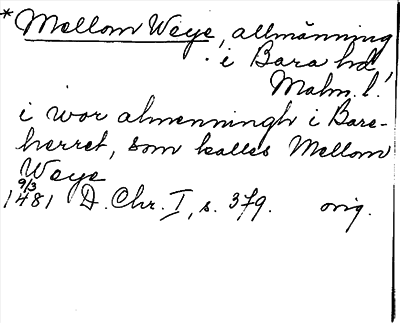 * Mellom Weye, allmänning
i Bara hd,
Malm. l.
i wor almenningh i Bare-
herret, som kalles Mellom
Weye
9/3
1481 D. Chr. I, s. 379. orig.